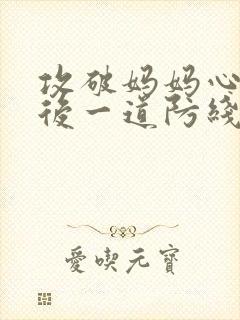 攻破妈妈心
後一道防綫
愛喫元寶